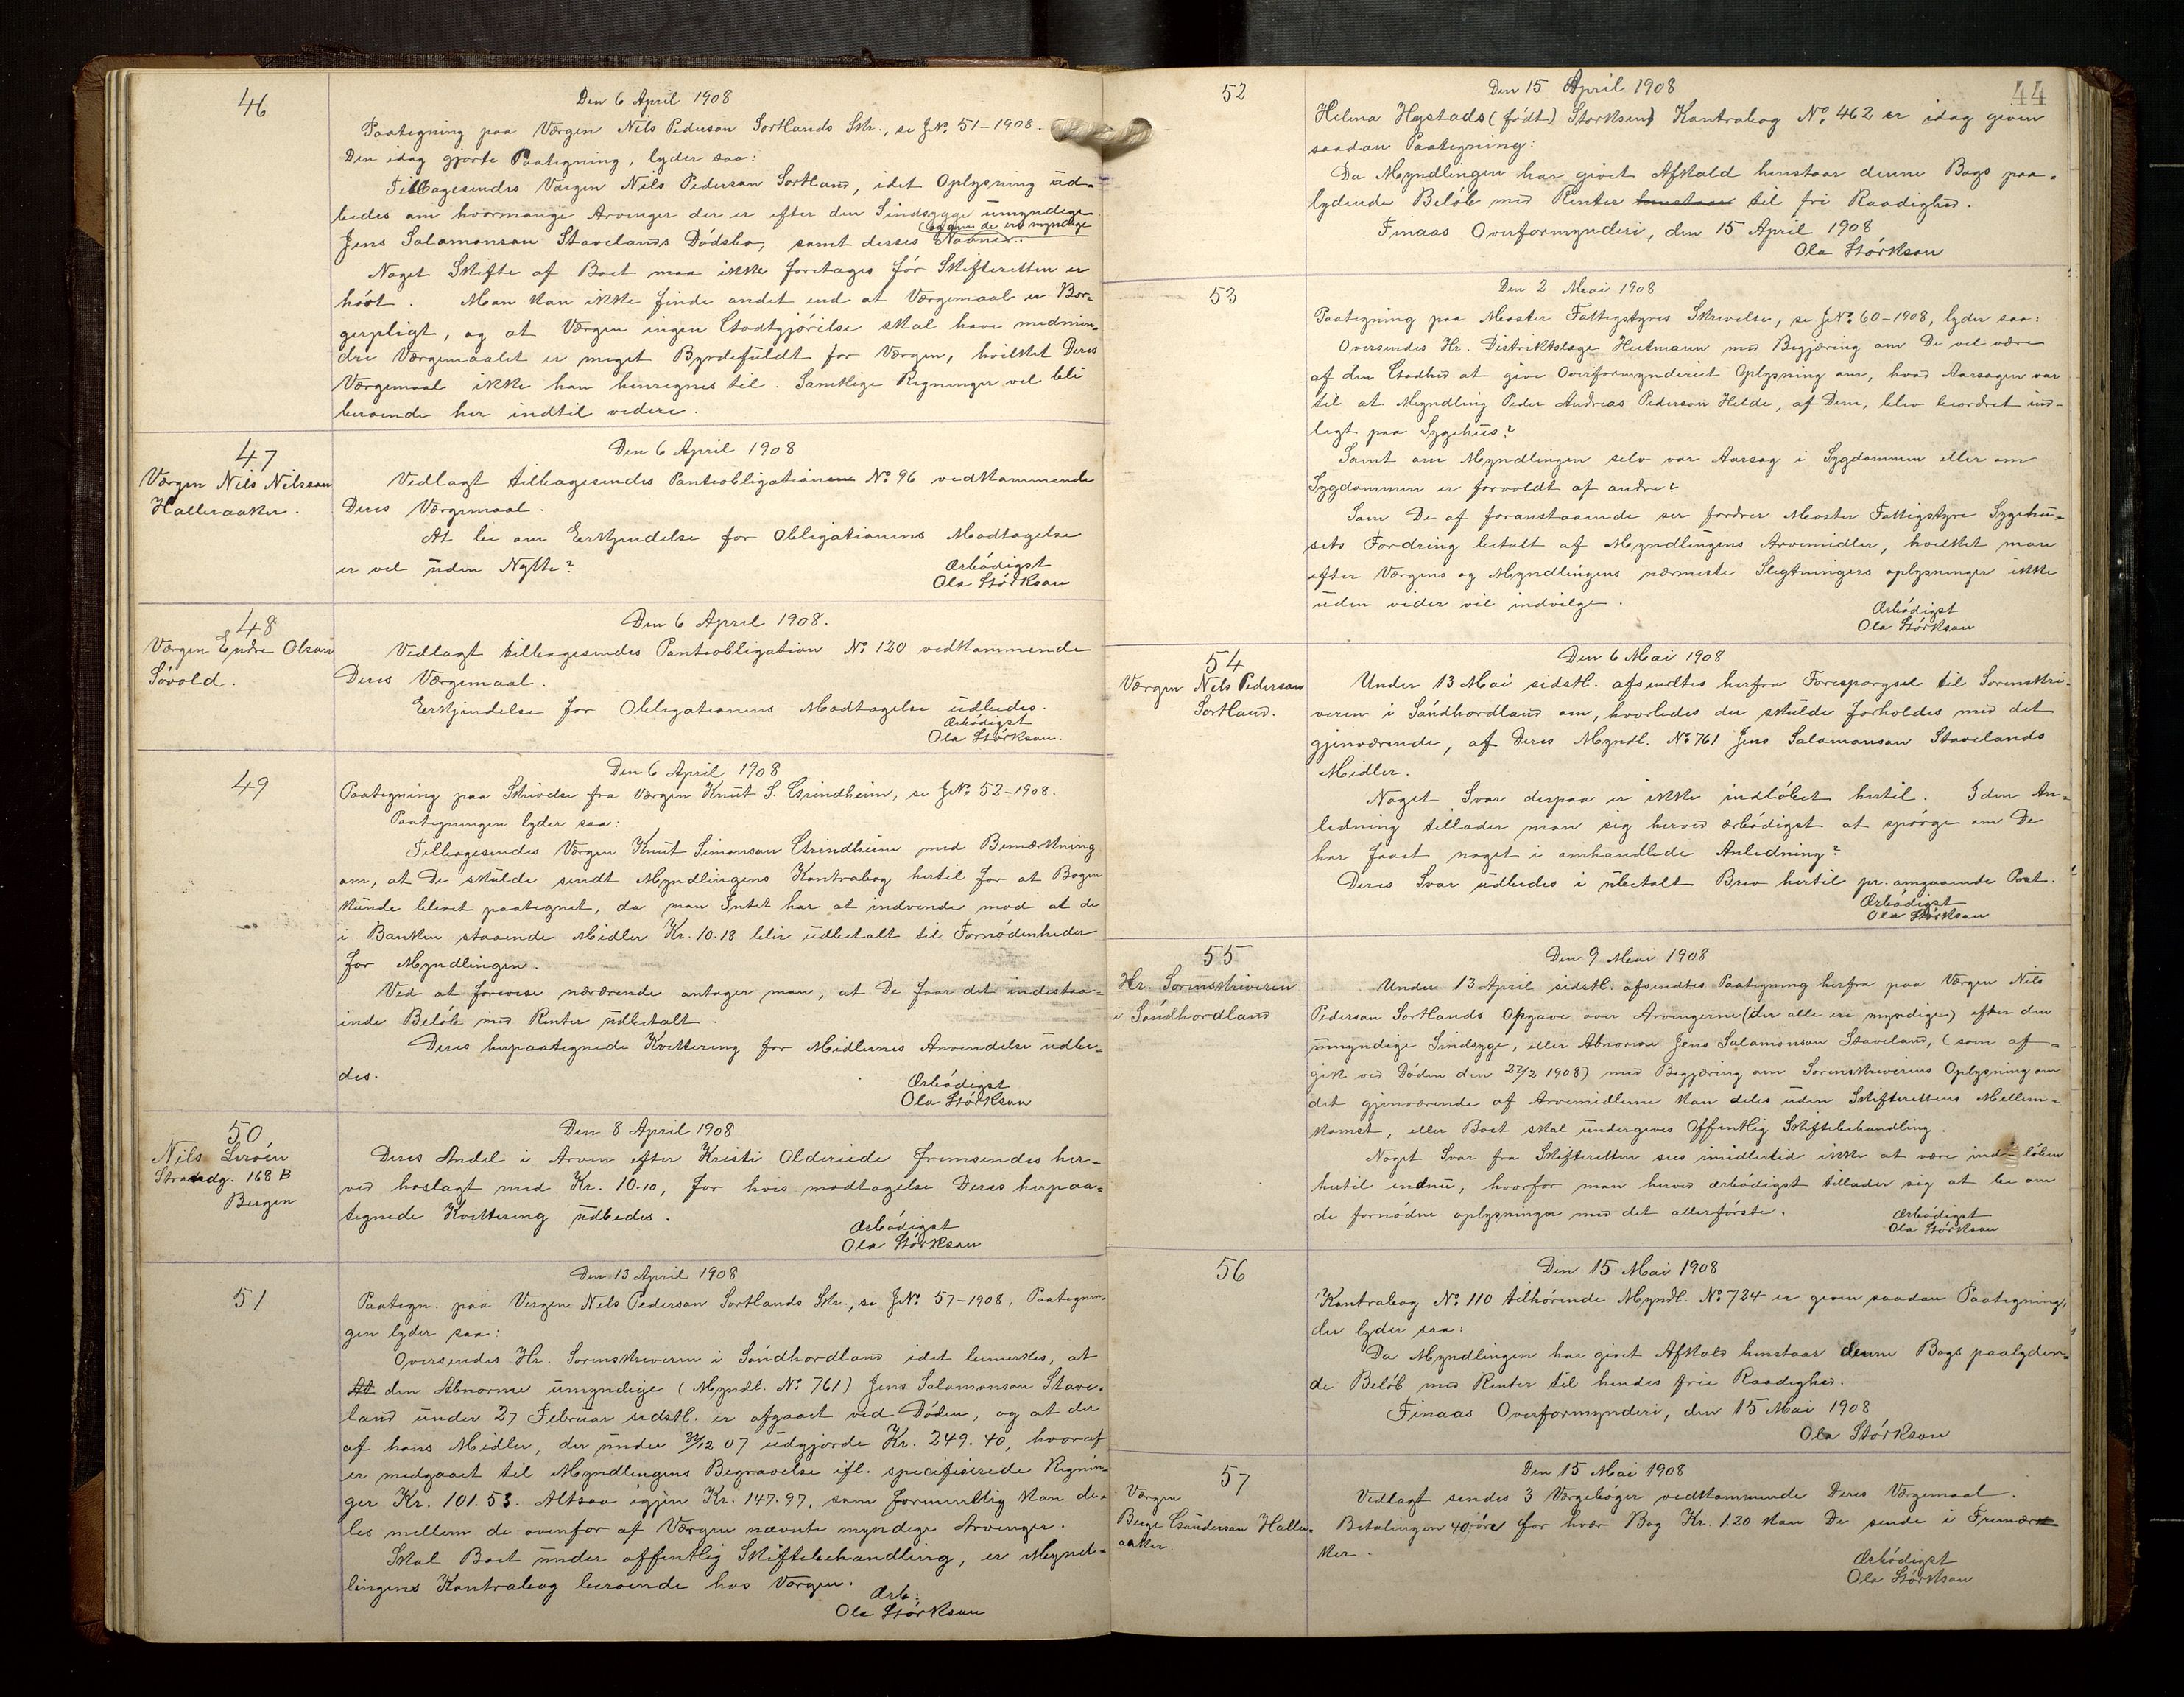 46
Den 6 April 1908
Paategning paa Værgen Nils Pederson Sortlands Skr., se J.No. 51-1908.
Den idag gjorte Paategning, lyder saa:
Tilbagesendes Værgen Nils Pederson Sortland, idet Oplysning ud-
bedes om hvormange Arvinger der er efter den Sindssyge umyndige
Jens Salamonson Stavelands Dødsbo, samt disses Navner. og om de ere myndige
Noget Skifte af Boet maa ikke foretages før Skifteretten er
hørt. Man kan ikke finde andet end at Værgemaal er Bor-
gerpligt, og at Værgen ingen Godtgjørelse skal have medmin-
dre Værgemaalet er meget Byrdefuldt for Værgen, hvilket Deres
Værgemaal ikke kan henregnes til. Samtlige Regninger vel bli
beroende her indtil videre.
47
Værgen Nils Nilsson
Halleraaker.
Den 6 April 1908
Vedlagt tilbagesendes Panteobligationen No. 96 vedkommende
Deres Værgemaal.
At be om Erkjendelse for Obligationens Modtagelse
er vel uden Nytte?
Ærbødigst
Ola Størkson
48
Værgen Endre Olson
Søvold.
Den 6 April 1908.
Vedlagt tilbagesendes Panteobligation No. 120 vedkommende
Deres Værgemaal.
Erkjendelse for Obligationens Modtagelse udbedes.
Ærbødigst
Ola Størkson.
49
Den 6 April 1908
Paategning paa Skrivelse fra Værgen Knut S. Grindheim, se J.No. 52-1908.
Paategningen lyder saa:
Tilbagesendes Værgen Knut Simonson Grindheim med Bemærkning
om, at De skulde sendt Myndlingens Kontrabog hertil for at Bogen
kunde blevet paategnet, da man Intet har at indvende mod at de
i Banken staaende Midler Kr. 10.18 blir udbetalt til Fornødenheder
for Myndlingen.
Ved at forevise nærværende antager man, at De faar det indestaa-
ende Beløb med Renter udbetalt.
Deres herpaategnede Kvittering for Midlernes Anvendelse udbe-
des.
Ærbødigst
Ola Størkson
50
Nils Lerøen
Strandg. 168 B
Bergen
Den 8 April 1908
Deres Andel i Arven efter Kristi Oldereide fremsendes her-
ved hoslagt med Kr. 10.10, for hvis modtagelse Deres herpaa-
tegnede Kvittering udbedes.
Ærbødigst
Ola Størkson
51
Den 13 April 1908
Paategn. paa Vergen Nils Pederson Sortlands Skr., se J.No. 57-1908, Paategnin-
gen lyder saa:
Oversendes Hr. Sorenskriveren i Søndhordland idet bemerkes, at
At den Abnorme umyndige (Myndl. No. 761) Jens Salamonson Stave-
land under 27 Februar sidstl. er afgaaet ved Døden, og at der
af hans Midler, der under 31/12 07 udgjorde Kr. 249.40, hvoraf
er medgaaet til Myndlingens Begravelse ifl. specifiserede Regnin-
ger Kr. 101.53. Altsaa igjen Kr. 147.97, som formentlig kan de-
les mellem de ovenfor af Værgen nævnte myndige Arvinger.
Skal Boet under offentlig Skiftebehandling, er Mynd-
lingens Kontrabog beroende hos Værgen.
Ærb:
Ola Størkson
44
52
Den 15 April 1908
Helena Hystads (født) Størksens) Kontrabog No. 462 er idag given
saadan Paategning:
Da Myndlingen har givet Afkald henstaar denne Bogs paa-
lydende Beløb med Renter henstaar til fri Raadighed.
Finaas Overformynderi, den 15 April 1908
Ola Størkson
53
Den 2 Mai 1908
Paategning paa Moster Fattigstyres Skrivelse, se J.No. 60-1908, lyder saa:
Oversendes Hr. Distriktslæge Heitmann med Begjæring om De vel være
af den Godhed at give Overformynderiet Oplysning om, hvad Aarsagen var
til at Myndling Peder Andreas Pederson Helde, af Dem, blev beordret ind-
lagt paa Sygehus?
Samt om Myndlingen selv var Aarsag i Sygdommen eller om
Sygdommen er forvoldt af andre?
Som De af foranstaaende ser fordrer Moster Fattigstyre Sygehu-
sets Fordring betalt af Myndlingens Arvemidler, hvilket man
efter Værgens og Myndlingens nærmeste Slegtningers oplysninger ikke
uden vider vil indvilge.
Ærbødigst
Ola Størkson
54
Værgen Nels Pederson
Sortland.
Den 6 Mai 1908
Under 13 Mai sidstl. afsendtes herfra Forespørgsel til Sorenskri-
veren i Søndhordland om, hvorledes der skulde forholdes med det
gjenværende, af Deres Myndl. No. 761 Jens Salamonson Stavelands
Midler.
Noget Svar derpaa er ikke indløbet hertil. I den An-
ledning tillader man sig herved ærbødigst at spørge om De
har faaet noget i omhandlede Anledning?
Deres Svar udbedes i ubetalt Brev hertil pr. omgaaende Post.
Ærbødigst
Ola Størkson
55
Hr. Sorenskriveren
i Søndhordland
Den 9 Mai 1908
Under 13 April sidstl. afsendtes Paategning herfra paa Værgen Nils
Pederson Sortlands Opgave over Arvingerne (der alle ere myndige) efter den
umyndige Sindsyge, eller Abnorme Jens Salamonson Staveland, (som af-
gik ved Døden den 27/2 1908) med Begjæring om Sorenskriverens Oplysning om
det gjenværende af Arvemidlerne kan deles uden Skifterettens Mellem-
komst, eller Boet skal undergives Offentlig Skiftebehandling.
Noget Svar fra Skifteretten sees imidlertid ikke at være ind-løben
hertil endnu, hvorfor man herved ærbødigst tillader sig at be om
de fornødne oplysninger med det allerførste.
Ærbødigst
Ola Størkson
56
Den 15 Mai 1908
Kontrabog No. 110 tilhørende Myndl. No. 724 er given saadan Paategning,
der lyder saa:
Da Myndlingen har givet Afkald henstaar denne Bogs paalyden-
de Beløb med Renter til hendes frie Raadighed.
Finaas Overformynderi, den 15 Mai 1908
Ola Størkson
57
Værgen
Berge Gunderson Haller-
aaker.
Den 15 Mai 1908
Vedlagt sendes 3 Værgebøger vedkommende Deres Værgemaal.
Betalingen 40 øre for hver Bog Kr. 1.20 kan De sende i Frimær-
ker.
Ærbødigst
Ola Størkson